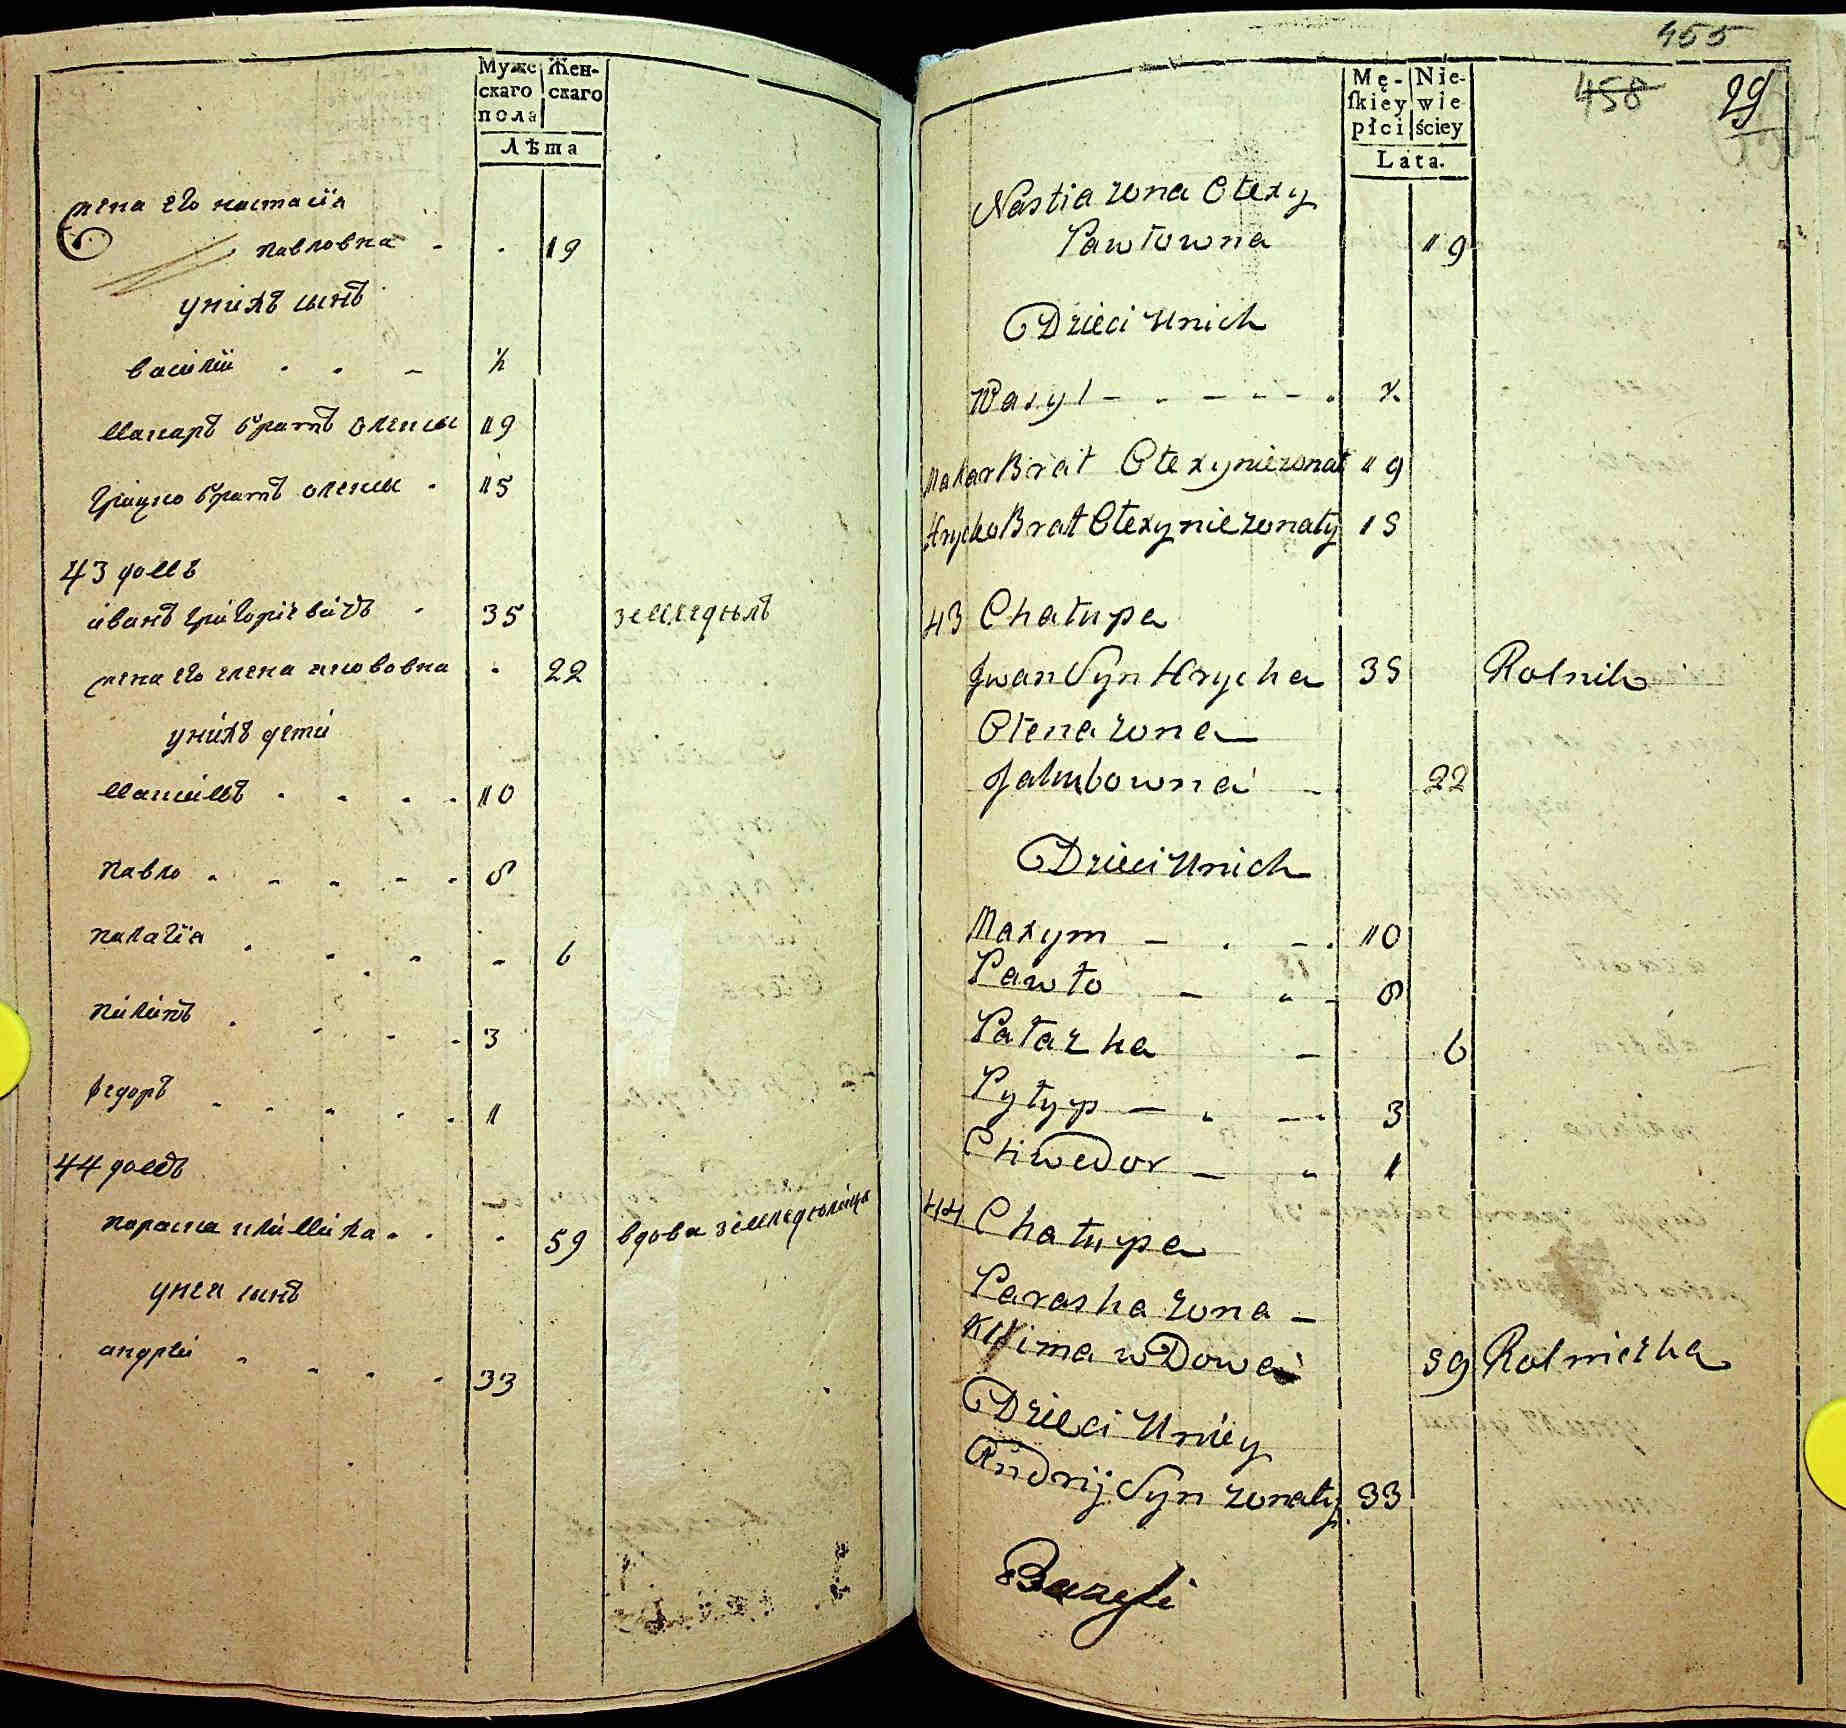 Муже
скаго
пола
Жен-
скаго
Лѣта
жена его настасія
павловна - . 19
унихъ сынъ
василіи . . - ½
макаръ братъ олексы 19
грицко братъ олексы . 15
43 домъ
иванъ григориевичъ . 35 земледѣлъ
жена его елена якововна . 22
унихъ дети
максимъ . . . . 10
павло . - - - . 8
палагія . . . - - 6
пилипъ . . - . 3
федоръ . . . . . 1
44 домъ
параска климиха . . . 59 вдова земледѣлица
унея сынъ
андреи . . . . 33
455
458
29
Mę-
ſkiey
płci
Nie-
wie
ściey
Lata.
Nastia zona Olexy
Pawłowna 19
Dzieci Unich
Wasyl - . - - - . ½
Makar Brat Olexy niezonat 19
Hrycko Brat Olexy nie zonaty 15
43 Chałupa
Jwan Syn Hrycka 35 Rolnik
Olena zona
Jakubowna - 22
Dzieci Unich
Maxym - . - . 10
Pawło - " - 8
Pałazka - 6
Pyłyp - . - . 3
Chwedor - " 1
44 Chałupa
Paraska zona -
Klima wDowa 59 Rolniczka
Dzieci Uniey
Andrij Syn zonaty 33
Bazyli